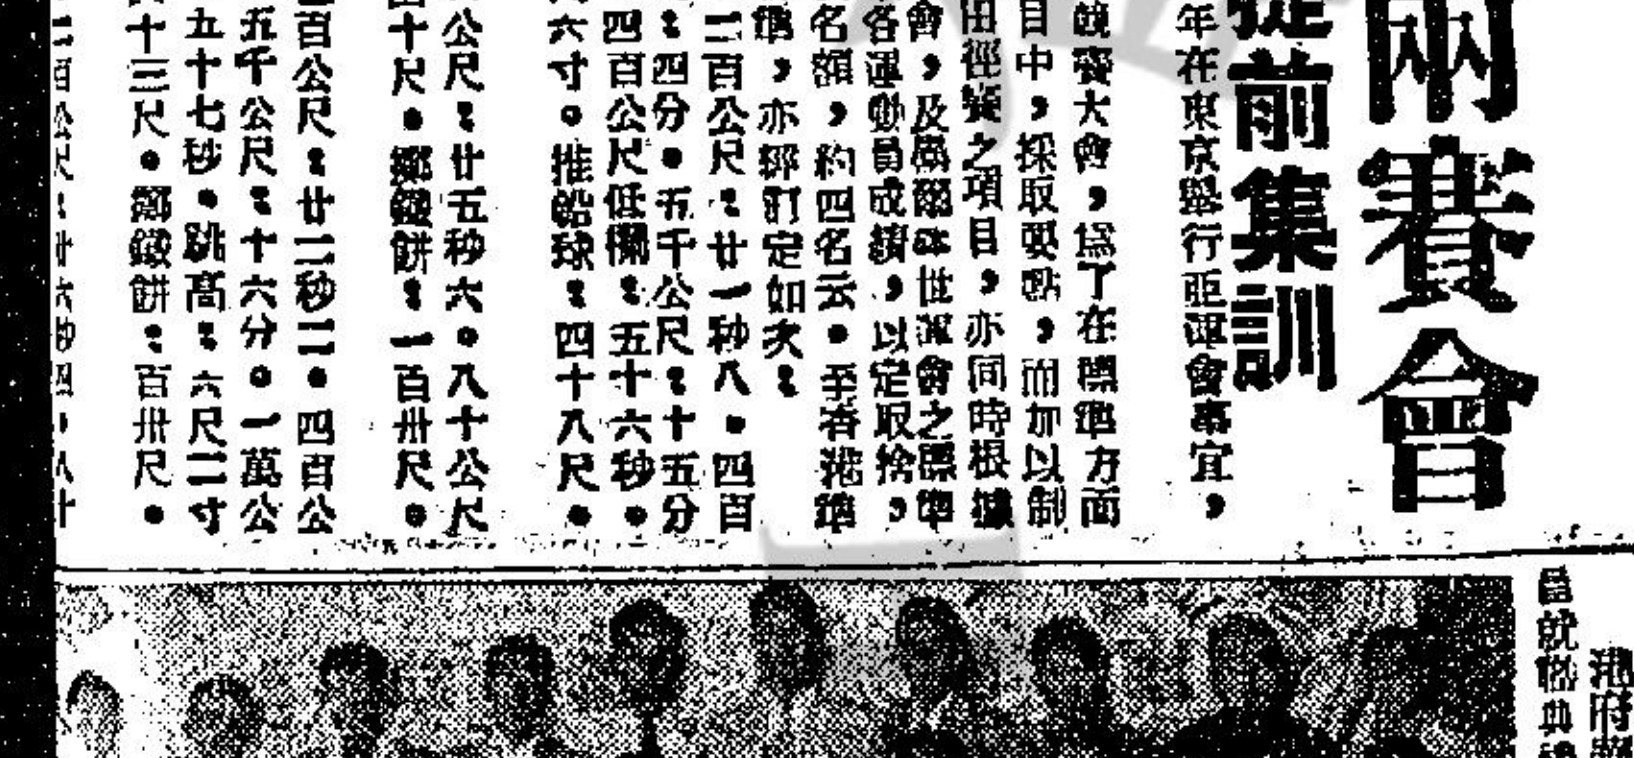 兩賽會
從前集訓
年在東京舉行亞運會事宜，
競賽大會，為了在標準方面
目中，採取要點，而加以制
田徑賽之項目，亦同時根據
會，及威爾斯世運會之標準
各運動員成績，以定取捨，
名額，約四名云。至香港準
準，亦都訂定如次：
二百公尺：廿一秒八。四百
：四分。五千公尺：十五分
四百公尺低欄：五十六秒。
六寸。推鉛球：四十八尺。
公尺：廿五秒六。八十公尺
十尺。擲鐵餅：一百卅尺。
百公尺：廿二秒二。四百公
五千公尺：十六分。一萬公
五十七秒。跳高：六尺二寸
十三尺。擲鐵餅：百卅尺。
二百公尺：廿六秒四，八十
港府
員就職典禮